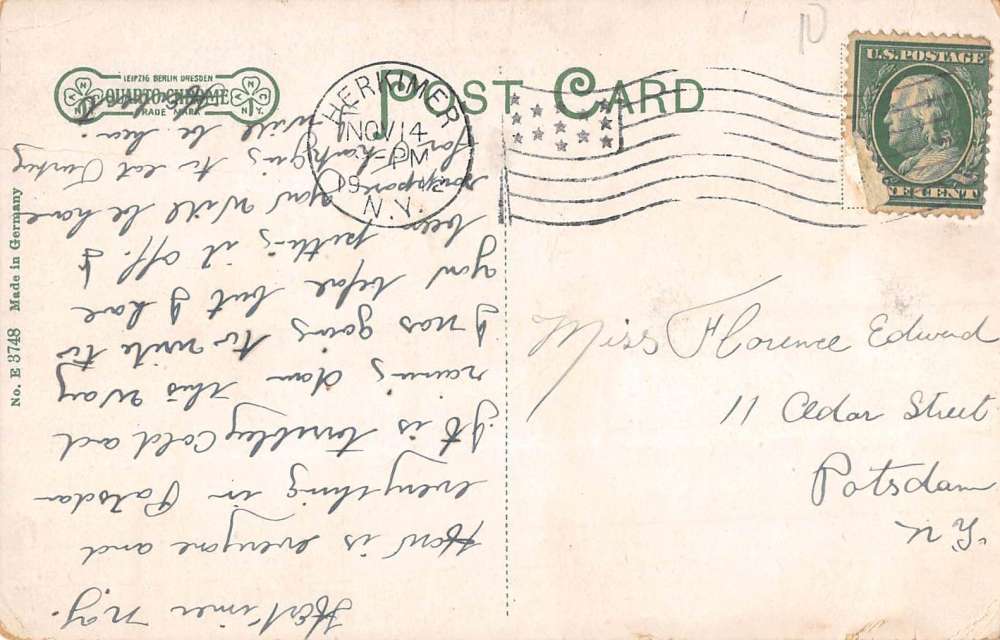 POST CARD
LEIPZIG BERLIN DRESDEN
QUARTO-CHROME
TRADE MARK
HERKIMER
NOV 14
PM
19
N.Y.
U.S. POSTAGE
NE CENT
No. E 3748 Made in Germany
Miss Florence Edward
11 Cedar Street
Potsdam
N.Y.
Herkimer N.Y.
How is everyone and
everything in Potsdam
It is terribley Cold and
raining down this way
I was going to write to
you before but I have
been putting it off. I
suppose you will be home
for thanksgiving to eat Turkey
will be here.